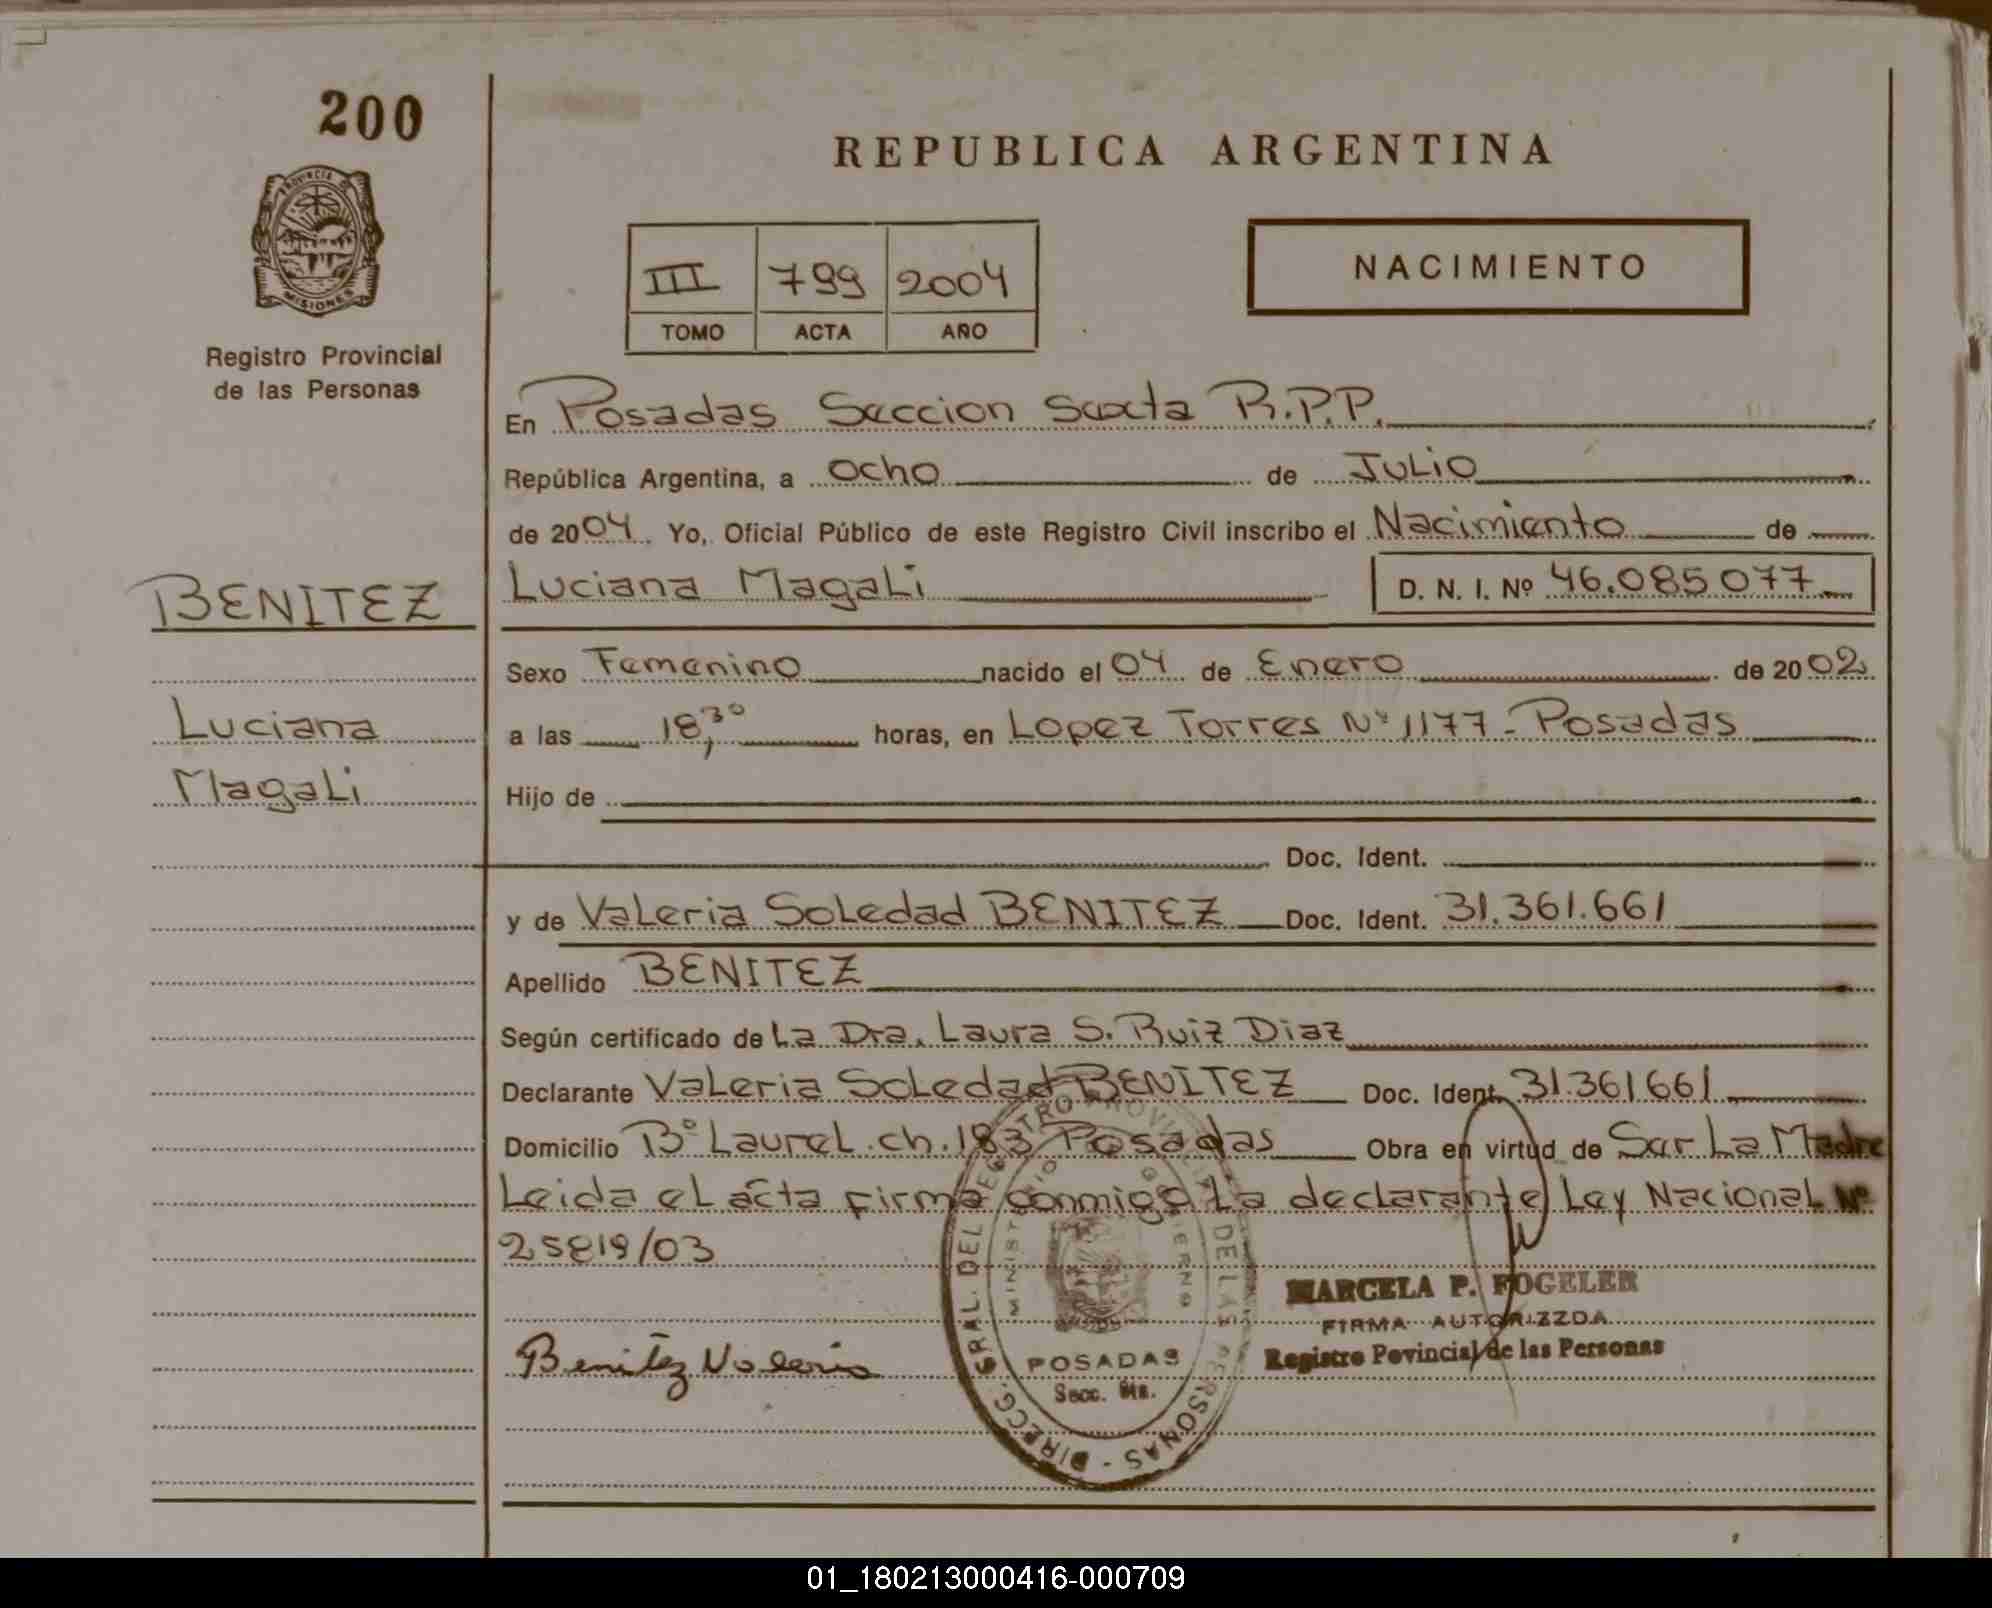 200
PROVINCIA DE
MISIONES
Registro Provincial
de las Personas
REPUBLICA ARGENTINA
III 799 2004
TOMO ACTA AÑO
NACIMIENTO
En Posadas Seccion Sexta R.P.P.
República Argentina, a Ocho de Julio
de 2004. Yo, Oficial Público de este Registro Civil inscribo el Nacimiento de
BENITEZ
Luciana Magali D. N. I. Nº 46.085077
Sexo Femenino nacido el 04 de Enero de 2002
Luciana
a las 18,30 horas, en Lopez Torres Nº 1177 - Posadas
Magali
Hijo de
Doc. Ident.
y de Valeria Soledad BENITEZ Doc. Ident. 31.361.661
Apellido BENITEZ
Según certificado de La Dra. Laura S. Ruiz Diaz
Declarante Valeria Soledad BENITEZ Doc. Ident. 31.361661
Domicilio Bº Laurel.ch.183 Posadas Obra en virtud de Ser La Madre
Leida el acta firma conmigo La declarante Ley Nacional Nº
25819/03
MARCELA P. FOGELER
FIRMA AUTORIZZDA
Registro Povincial de las Personas
Benitez Valeria
DIRECC. GRAL. DEL REGISTRO PROVINCIAL DE LAS PERSONAS -
MINISTERIO GOBIERNO
POSADAS
Secc. 6ta.
01_180213000416-000709